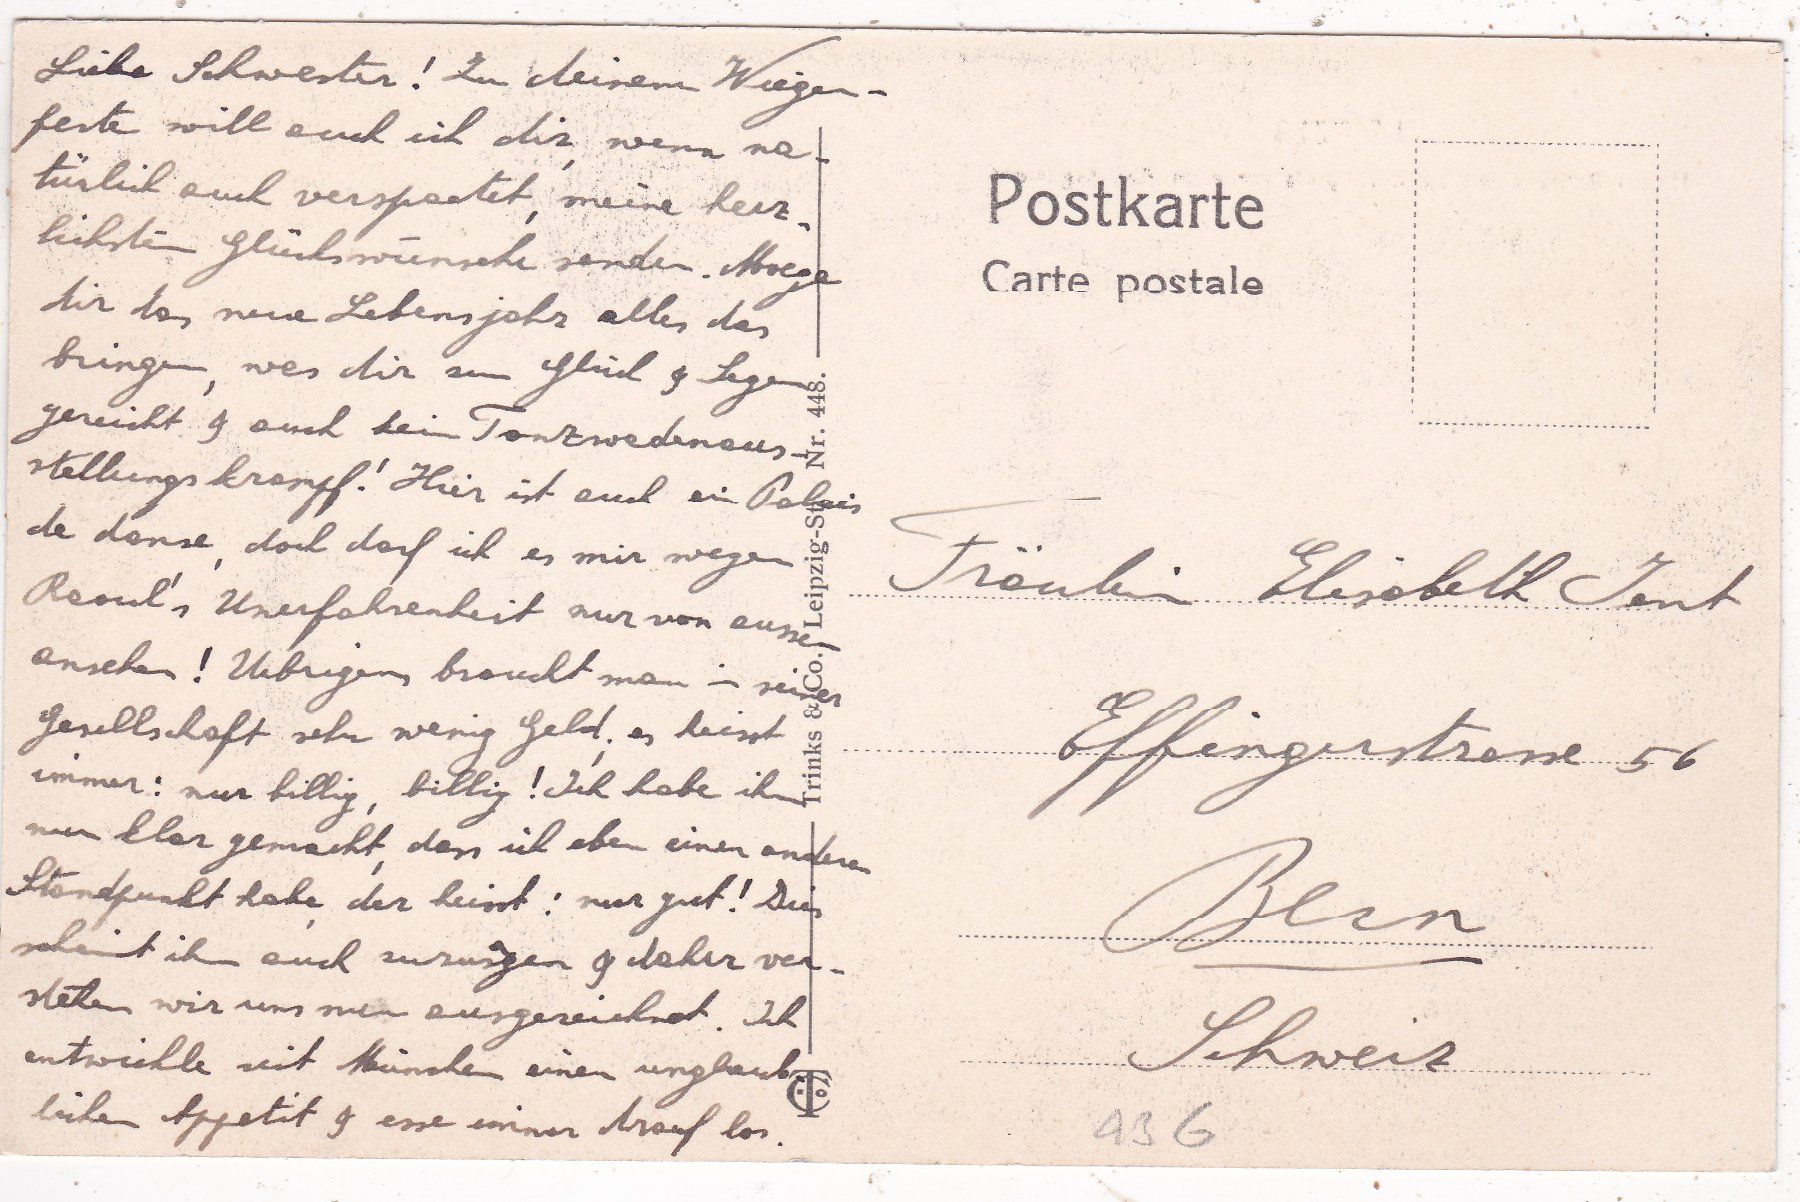 Liebe Schwester! Zu deinem Wiegen-
feste will auch ich dir, wenn na-
türlich auch verspaetet, meine herz-
lichsten Glückswünsche senden. Moege
dir das neue Lebensjahr alles das
bringen, was dir zum Glück & Segen
gereicht & auch kein Tanzwadenaus-
stellungskrampf! Hier ist auch ein Palais
de danse, doch darf ich es mir wegen
Raoul's Unerfahrenheit nur von aussen
ansehen! Uebrigens braucht man in seiner
Gesellschaft sehr wenig Geld, es heisst
immer: nur billig, billig! Ich habe ihm
nun klar gemacht, dass ich eben einen anderen
Standpunkt habe, der heisst: nur gut! Dies
scheint ihm auch zuzusagen & daher ver-
stehen wir uns nun ausgezeichnet. Ich
entwickle seit München einen unglaub-
lichen Appetit & esse immer drauf los.
Trinks & Co., Leipzig-St. Nr. 448.
Postkarte
Carte postale
Fräulein Elisabeth Jent
Effingerstrasse 56
Bern
Schweiz
936